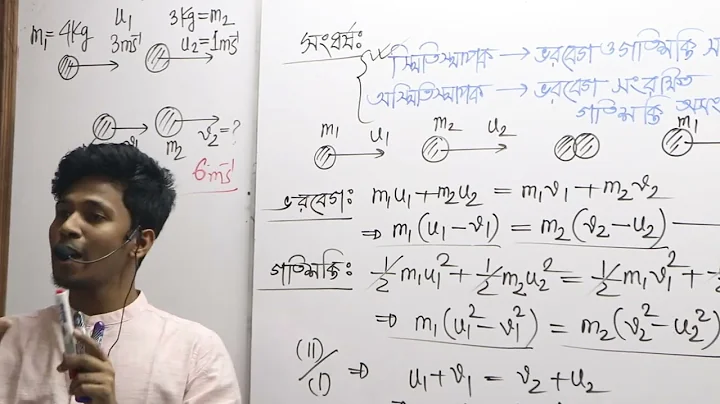 m₁=4kg u₁ 3kg=m₂
3ms⁻¹ u₂=1ms⁻¹
v₁ m₂ v₂=?
6ms⁻¹
সংঘর্ষঃ
স্থিতিস্থাপক → ভরবেগ ও গতিশক্তি স
অস্থিতিস্থাপক → ভরবেগ সংরক্ষিত
গতিশক্তি অসং
m₁ u₁ m₂ u₂ m₁
ভরবেগঃ m₁u₁+m₂u₂ = m₁v₁+m₂v₂
⇒ m₁(u₁-v₁) = m₂(v₂-u₂)
গতিশক্তিঃ ½m₁u₁²+½m₂u₂²=½m₁v₁²+
⇒ m₁(u₁²-v₁²) = m₂(v₂²-u₂²)
(II)/(I) ⇒ u₁+v₁ = v₂+u₂